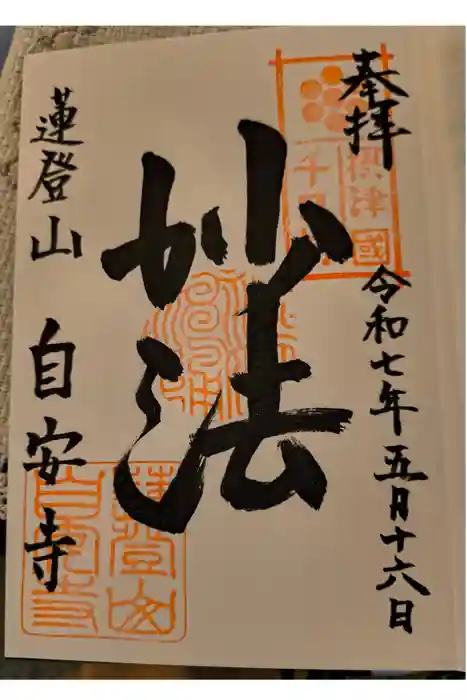 奉拝
令和七年五月十六日
摂津國
妙法
蓮登山 自安寺
蓮登山
自安寺